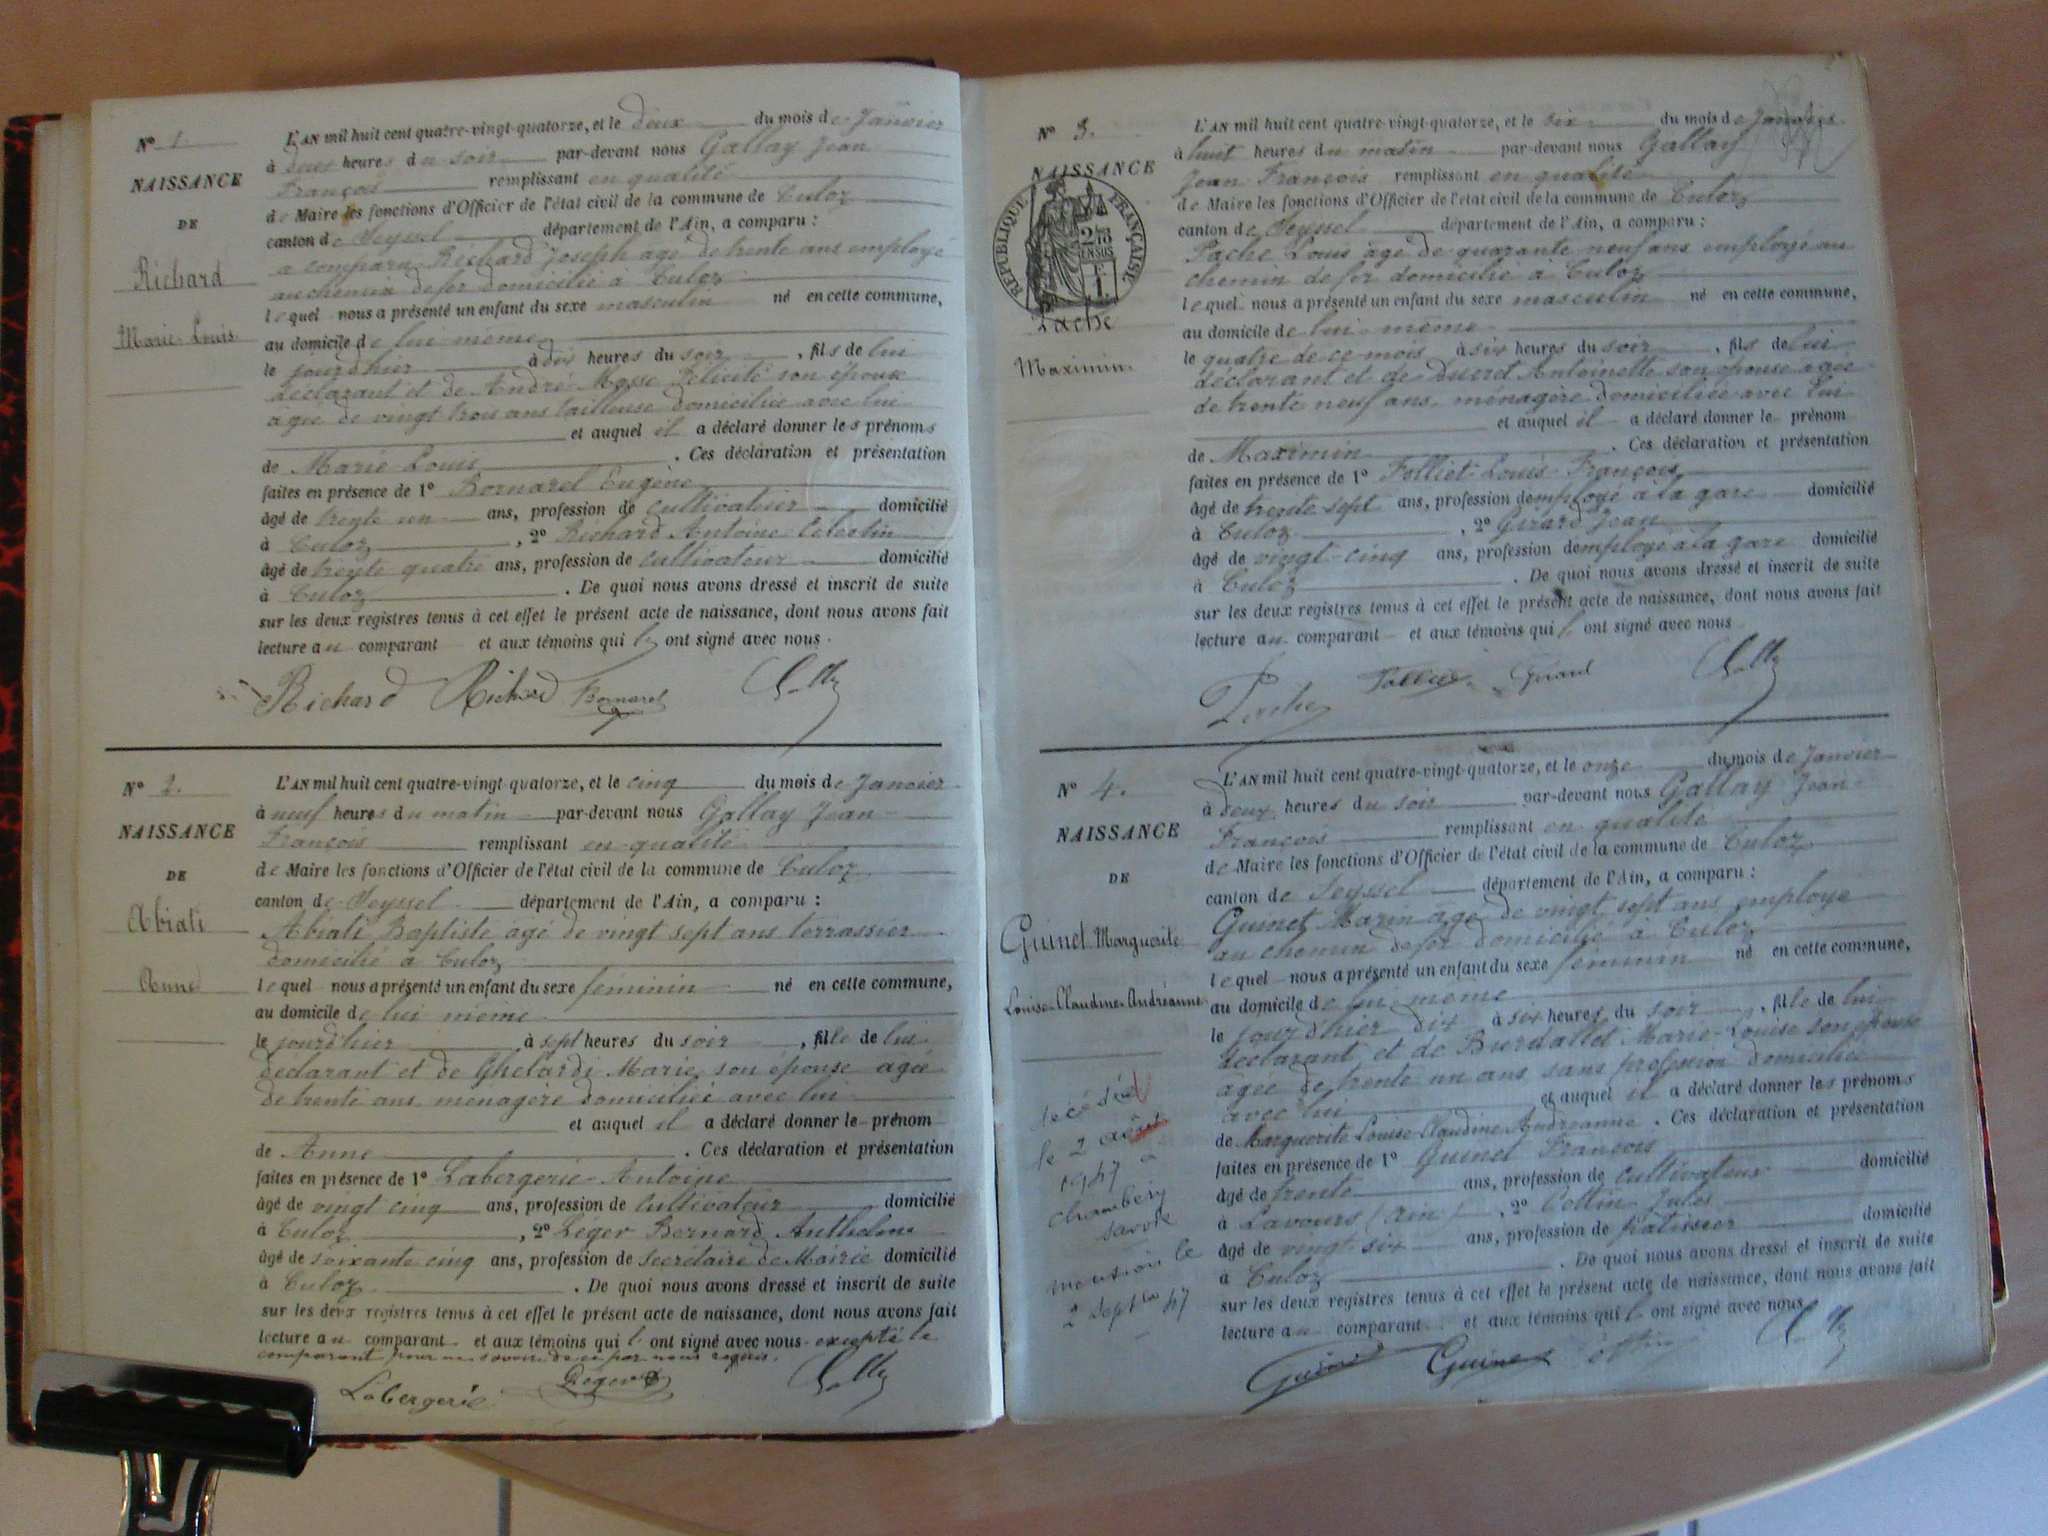 N° 1.
NAISSANCE
DE
Richard
Marie-Louis
L'AN mil huit cent quatre-vingt-quatorze, et le deux du mois de Janvier
à heures du soir par-devant nous Gallay Jean
François remplissant en qualité
de Maire les fonctions d'Officier de l'état civil de la commune de Culoz
canton de Seyssel département de l'Ain, a comparu :
a comparu Richard Joseph âgé de trente ans employé
au chemin de fer domicilié à Culoz
lequel nous a présenté un enfant du sexe masculin né en cette commune,
au domicile de lui même
le jourd'hier à dix heures du soir , fils de lui
déclarant et de André Masse Félicité son épouse
âgée de vingt trois ans tailleuse domiciliée avec lui
et auquel il a déclaré donner les prénoms
de Marie Louis . Ces déclaration et présentation
faites en présence de 1° Bornarel Eugène
âgé de trente un ans, profession de cultivateur domicilié
à Culoz , 2° Richard Antoine Celestin
âgé de trente quatre ans, profession de cultivateur domicilié
à Culoz . De quoi nous avons dressé et inscrit de suite
sur les deux registres tenus à cet effet le présent acte de naissance, dont nous avons fait
lecture au comparant et aux témoins qui ont signé avec nous.
Richard Richard Bornarel Gallay
N° 2.
NAISSANCE
DE
Abiati
Anne
L'AN mil huit cent quatre-vingt-quatorze, et le cinq du mois de Janvier
à neuf heures du matin par-devant nous Gallay Jean
François remplissant en qualité
de Maire les fonctions d'Officier de l'état civil de la commune de Culoz
canton de Seyssel département de l'Ain, a comparu :
Abiati Baptiste âgé de vingt sept ans terrassier
domicilié à Culoz
lequel nous a présenté un enfant du sexe féminin né en cette commune,
au domicile de lui même
le jourd'hier à sept heures du soir , fille de lui
déclarant et de Ghelardi Marie son épouse agée
de trente ans ménagère domiciliée avec lui
et auquel il a déclaré donner le prénom
de Anne . Ces déclaration et présentation
faites en présence de 1° Labergerie Antoine
âgé de vingt cinq ans, profession de cultivateur domicilié
à Culoz , 2° Léger Bernard Anthelme
âgé de soixante cinq ans, profession de secrétaire de Mairie domicilié
à Culoz . De quoi nous avons dressé et inscrit de suite
sur les deux registres tenus à cet effet le présent acte de naissance, dont nous avons fait
lecture au comparant et aux témoins qui ont signé avec nous excepté le
comparant pour ne savoir de ce par nous requis.
Labergerie Leger Gallay
N° 3.
NAISSANCE
RÉPUBLIQUE FRANÇAISE
2/10 EN SUS
Pache
Maximin.
L'AN mil huit cent quatre-vingt-quatorze, et le six du mois de Janvier
à huit heures du matin par-devant nous Gallay
Jean François remplissant en qualité
de Maire les fonctions d'Officier de l'état civil de la commune de Culoz
canton de Seyssel département de l'Ain, a comparu :
Pache Louis âgé de quarante neuf ans employé au
chemin de fer domicilié à Culoz
lequel nous a présenté un enfant du sexe masculin né en cette commune,
au domicile de lui-même
le quatre de ce mois à six heures du soir , fils de lui
déclarant et de Ducret Antoinette son épouse agée
de trente neuf ans ménagère domiciliée avec lui
et auquel il a déclaré donner le prénom
de Maximin . Ces déclaration et présentation
faites en présence de 1° Folliet Louis François
âgé de trente sept ans, profession d'employé à la gare domicilié
à Culoz , 2° Girard Jean
âgé de vingt-cinq ans, profession d'employé à la gare domicilié
à Culoz . De quoi nous avons dressé et inscrit de suite
sur les deux registres tenus à cet effet le présent acte de naissance, dont nous avons fait
lecture au comparant et aux témoins qui ont signé avec nous
Pache Folliet Girard Gallay
N° 4.
NAISSANCE
DE
Guinet Marguerite
Louise-Claudine-Andréanne
décédée
le 2 août
1947 à
Chambéry
Savoie
mention le
2 Septbre 47
L'AN mil huit cent quatre-vingt-quatorze, et le onze du mois de Janvier
à deux heures du soir par-devant nous Gallay Jean
François remplissant en qualité
de Maire les fonctions d'Officier de l'état civil de la commune de Culoz
canton de Seyssel département de l'Ain, a comparu :
Guinet Marin âgé de vingt sept ans employé
au chemin de fer domicilié à Culoz
lequel nous a présenté un enfant du sexe féminin né en cette commune,
au domicile de lui même
le jourd'hier dix à six heures du soir , fille de lui
déclarant et de Burdallet Marie-Louise son épouse
agée de trente un ans sans profession domiciliée
avec lui et auquel il a déclaré donner les prénoms
de Marguerite Louise Claudine Andréanne . Ces déclaration et présentation
faites en présence de 1° Guinet François
âgé de trente ans, profession de cultivateur domicilié
à Lavours (Ain) , 2° Cottin Jules
âgé de vingt-six ans, profession de patissier domicilié
à Culoz . De quoi nous avons dressé et inscrit de suite
sur les deux registres tenus à cet effet le présent acte de naissance, dont nous avons fait
lecture au comparant et aux témoins qui ont signé avec nous
Guinet Guinet Cottin Gallay